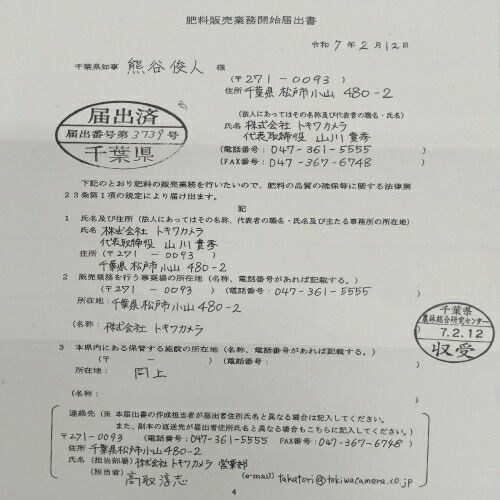 肥料販売業務開始届出書
令和7年2月12日
千葉県知事 熊谷俊人 様
(〒271-0093 )
住所 千葉県松戸市小山480-2
届出済
届出番号第3739号
千葉県
(法人にあってはその名称及び代表者の職名・氏名)
氏名 株式会社トキワカメラ
代表取締役 山川貴秀
(電話番号:047-361-5555 )
(FAX番号:047-367-6748 )
下記のとおり肥料の販売業務を行いたいので、肥料の品質の確保等に関する法律第
23条第1項の規定により届け出ます。
記
1 氏名及び住所(法人にあってはその名称、代表者の職名・氏名及び主たる事務所の所在地)
氏名 株式会社トキワカメラ
代表取締役 山川貴秀
住所(〒271-0093 )
千葉県松戸市小山480-2
2 販売業務を行う事業場の所在地(名称、電話番号があれば記載する。)
(〒271-0093 )(電話番号:047-361-5555 )
所在地:千葉県松戸市小山480-2
(名称:株式会社トキワカメラ )
千葉県
農林総合研究センター
7.2.12
収受
3 本県内にある保管する施設の所在地(名称、電話番号があれば記載する。)
(〒 - )(電話番号: )
所在地: 同上
(名称: )
連絡先(※本届出書の作成担当者が届出者住所氏名と異なる場合は記入してください。
また、副本の返送先が届出者住所氏名と異なる場合もこちらに記入してください。)
〒271-0093 (電話番号:047-361-5555 FAX番号:047-367-6748 )
住所 千葉県松戸市小山480-2
氏名(担当部署)株式会社トキワカメラ 営業部
(担当者) 高取淳志 (e-mail) takatori@tokiwacamera.co.jp
4